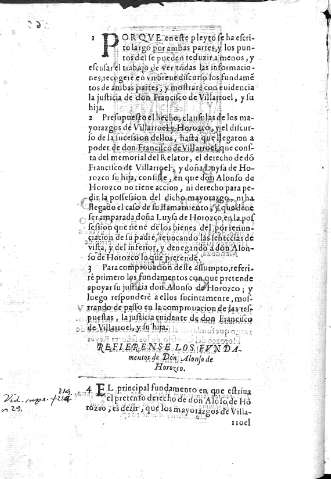 1 PORQVE en este pleyto se ha escri-
to largo por ambas partes, y los pun-
tos del se pueden reduzir a menos, y
escusar el trabajo de ver todas las informacio-
nes, recogerè en vn breue discurso los fundamē
tos de ambas partes, y mostrarè con euidencia
la justicia de don Francisco de Villarroel, y su
hija.
2 Presupuesto el hecho, clausulas de los ma-
yorazgos de Villarroel y Horozco, y el discur-
so de la sucession dellos, hasta que llegaron a
poder de don Francisco de Villarroel, que cons-
ta del memorial del Relator, el derecho de dō
Francisco de Villarroel, y doña Luysa de Ho-
rozco su hija, consiste, en que don Alonso de
Horozco no tiene accion, ni derecho para pe-
dir la possession del dicho mayorazgo, ni ha
llegado el caso de su llamamiento, y que deue
ser amparada doña Luysa de Horozco en la pos
session que tiene de los bienes del, por renun-
ciacion de su padre, reuocando las sentēcias de
vista, y del inferior, y denegando a don Alonso
de Horozco lo que pretende.
3 Para comprouacion deste assumpto, referi-
rè primero los fundamentos con que pretende
apoyar su justicia don Alonso de Horozco; y
luego responderè a ellos sucintamente, mos-
trando de passo en la comprouacion de las res-
puestas, la justicia euidente de don Francisco
de Villarroel, y su hija.
REFIERENSE LOS FVNDA-
mentos de Don Alonso de
Horozco.
4 EL principal fundamento en que estriua
el pretenso derecho de don Alōso de Ho
rozco, es dezir, que los mayorazgos de Villa-
rroel
n 29.